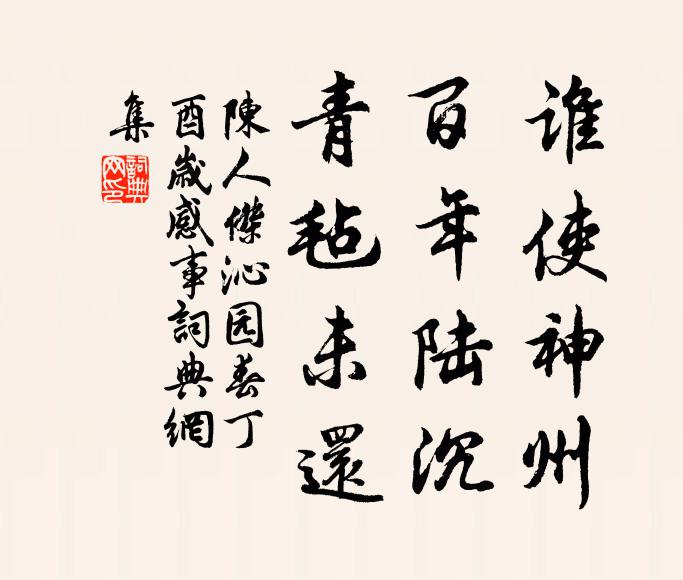 谁使神州
百年陆沉
青毡未還
陳人傑沁园春丁
酉歲感事詞典網
集
詞典
网印